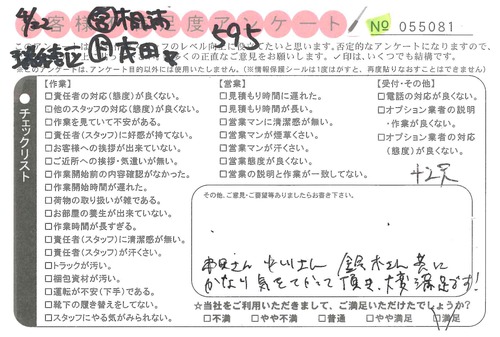 9/22 ㊂相浦
お客様満足度アンケート
№ 055081
茂田 595
このアンケートは、スタッフのレベル向上に役立てたいと思います。否定的なアンケートになりますので、
多くの正直なご意見をお願いします。✓印は、いくつでも結構です。
※このアンケートは、アンケート目的以外には使用いたしません。（※情報保護シールは1度はがすと、再度貼りなおすことはできません）
チェックリスト
【作業】
□責任者の対応(態度)が良くない。
□他のスタッフの対応(態度)が良くない。
□作業を見ていて不安がある。
□責任者(スタッフ)に好感が持てない。
□お客様への挨拶が出来ていない。
□ご近所への挨拶・気遣いが無い。
□作業開始前の内容確認がなかった。
□作業開始時間が遅れた。
□荷物の取り扱いが雑である。
□お部屋の養生が出来ていない。
□作業時間が長すぎる。
□責任者(スタッフ)に清潔感が無い。
□責任者(スタッフ)が汗くさい。
□トラックが汚い。
□梱包資材が汚い。
□運転が不安(下手)である。
□靴下の履き替えをしてない。
□スタッフにやる気がみられない。
【営業】
□見積もり時間に遅れた。
□見積もり時間が長い。
□営業マンに清潔感が無い。
□営業マンが煙草くさい。
□営業マンが汗くさい。
□営業態度が良くない。
□営業の説明と作業が一致してない。
【受付・その他】
□電話の対応が良くない。
□オプション業者の説明
・作業が良くない。
□オプション業者の対応
(態度)が良くない。
その他、ご意見・ご要望等ありましたらお書き下さい。
さん さん 鈴木さん 共に
かなり気をつかって頂き、大変満足です!
★当社をご利用いただきまして、ご満足いただけたでしょうか?
□不満 □やや不満 □普通 □やや満足 □満足